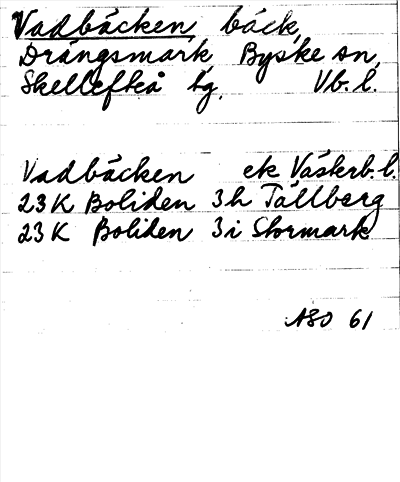 Vadbäcken, bäck,
Drängsmark, Byske sn,
Skellefteå tg, Vb. l.
Vadbäcken ek Västerb. l.
23K Boliden 3h Tällberg
23K Boliden 3i Stormark
ASO 61